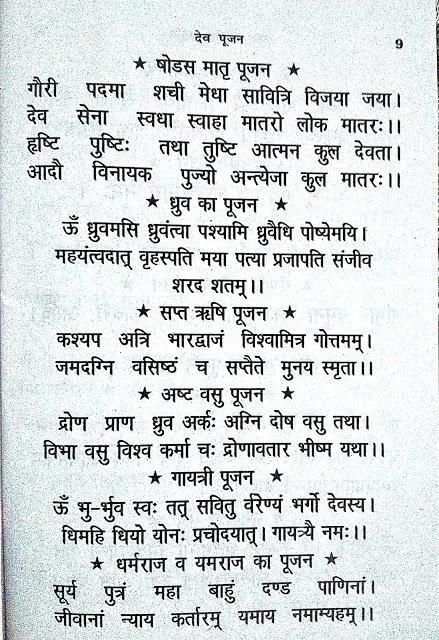 देव पूजन
9
★ षोडस मातृ पूजन ★
गौरी पदमा शची मेधा सावित्रि विजया जया।
देव सेना स्वधा स्वाहा मातरो लोक मातरः।।
हृष्टि पुष्टिः तथा तुष्टि आत्मन कुल देवता।
आदौ विनायक पुज्यो अन्त्येजा कुल मातरः।।
★ ध्रुव का पूजन ★
ॐ ध्रुवमसि ध्रुवंत्वा पश्यामि ध्रुवैधि पोष्येमयि।
महयंत्वदात् वृहस्पति मया पत्या प्रजापति संजीव
शरद शतम्।।
★ सप्त ऋषि पूजन ★
कश्यप अत्रि भारद्वाजं विश्वामित्र गोत्तमम्।
जमदग्नि वसिष्ठं च सप्तैते मुनय स्मृता।।
★ अष्ट वसु पूजन ★
द्रोण प्राण ध्रुव अर्कः अग्नि दोष वसु तथा।
विभा वसु विश्व कर्मा चः द्रोणावतार भीष्म यथा।।
★ गायत्री पूजन ★
ॐ भु-र्भुव स्वः तत् सवितु र्वरेण्यं भर्गो देवस्य।
धिमहि धियो योनः प्रचोदयात्। गायत्र्यै नमः।।
★ धर्मराज व यमराज का पूजन ★
सूर्य पुत्रं महा बाहुं दण्ड पाणिनां।
जीवानां न्याय कर्तारम् यमाय नमाम्यहम्।।